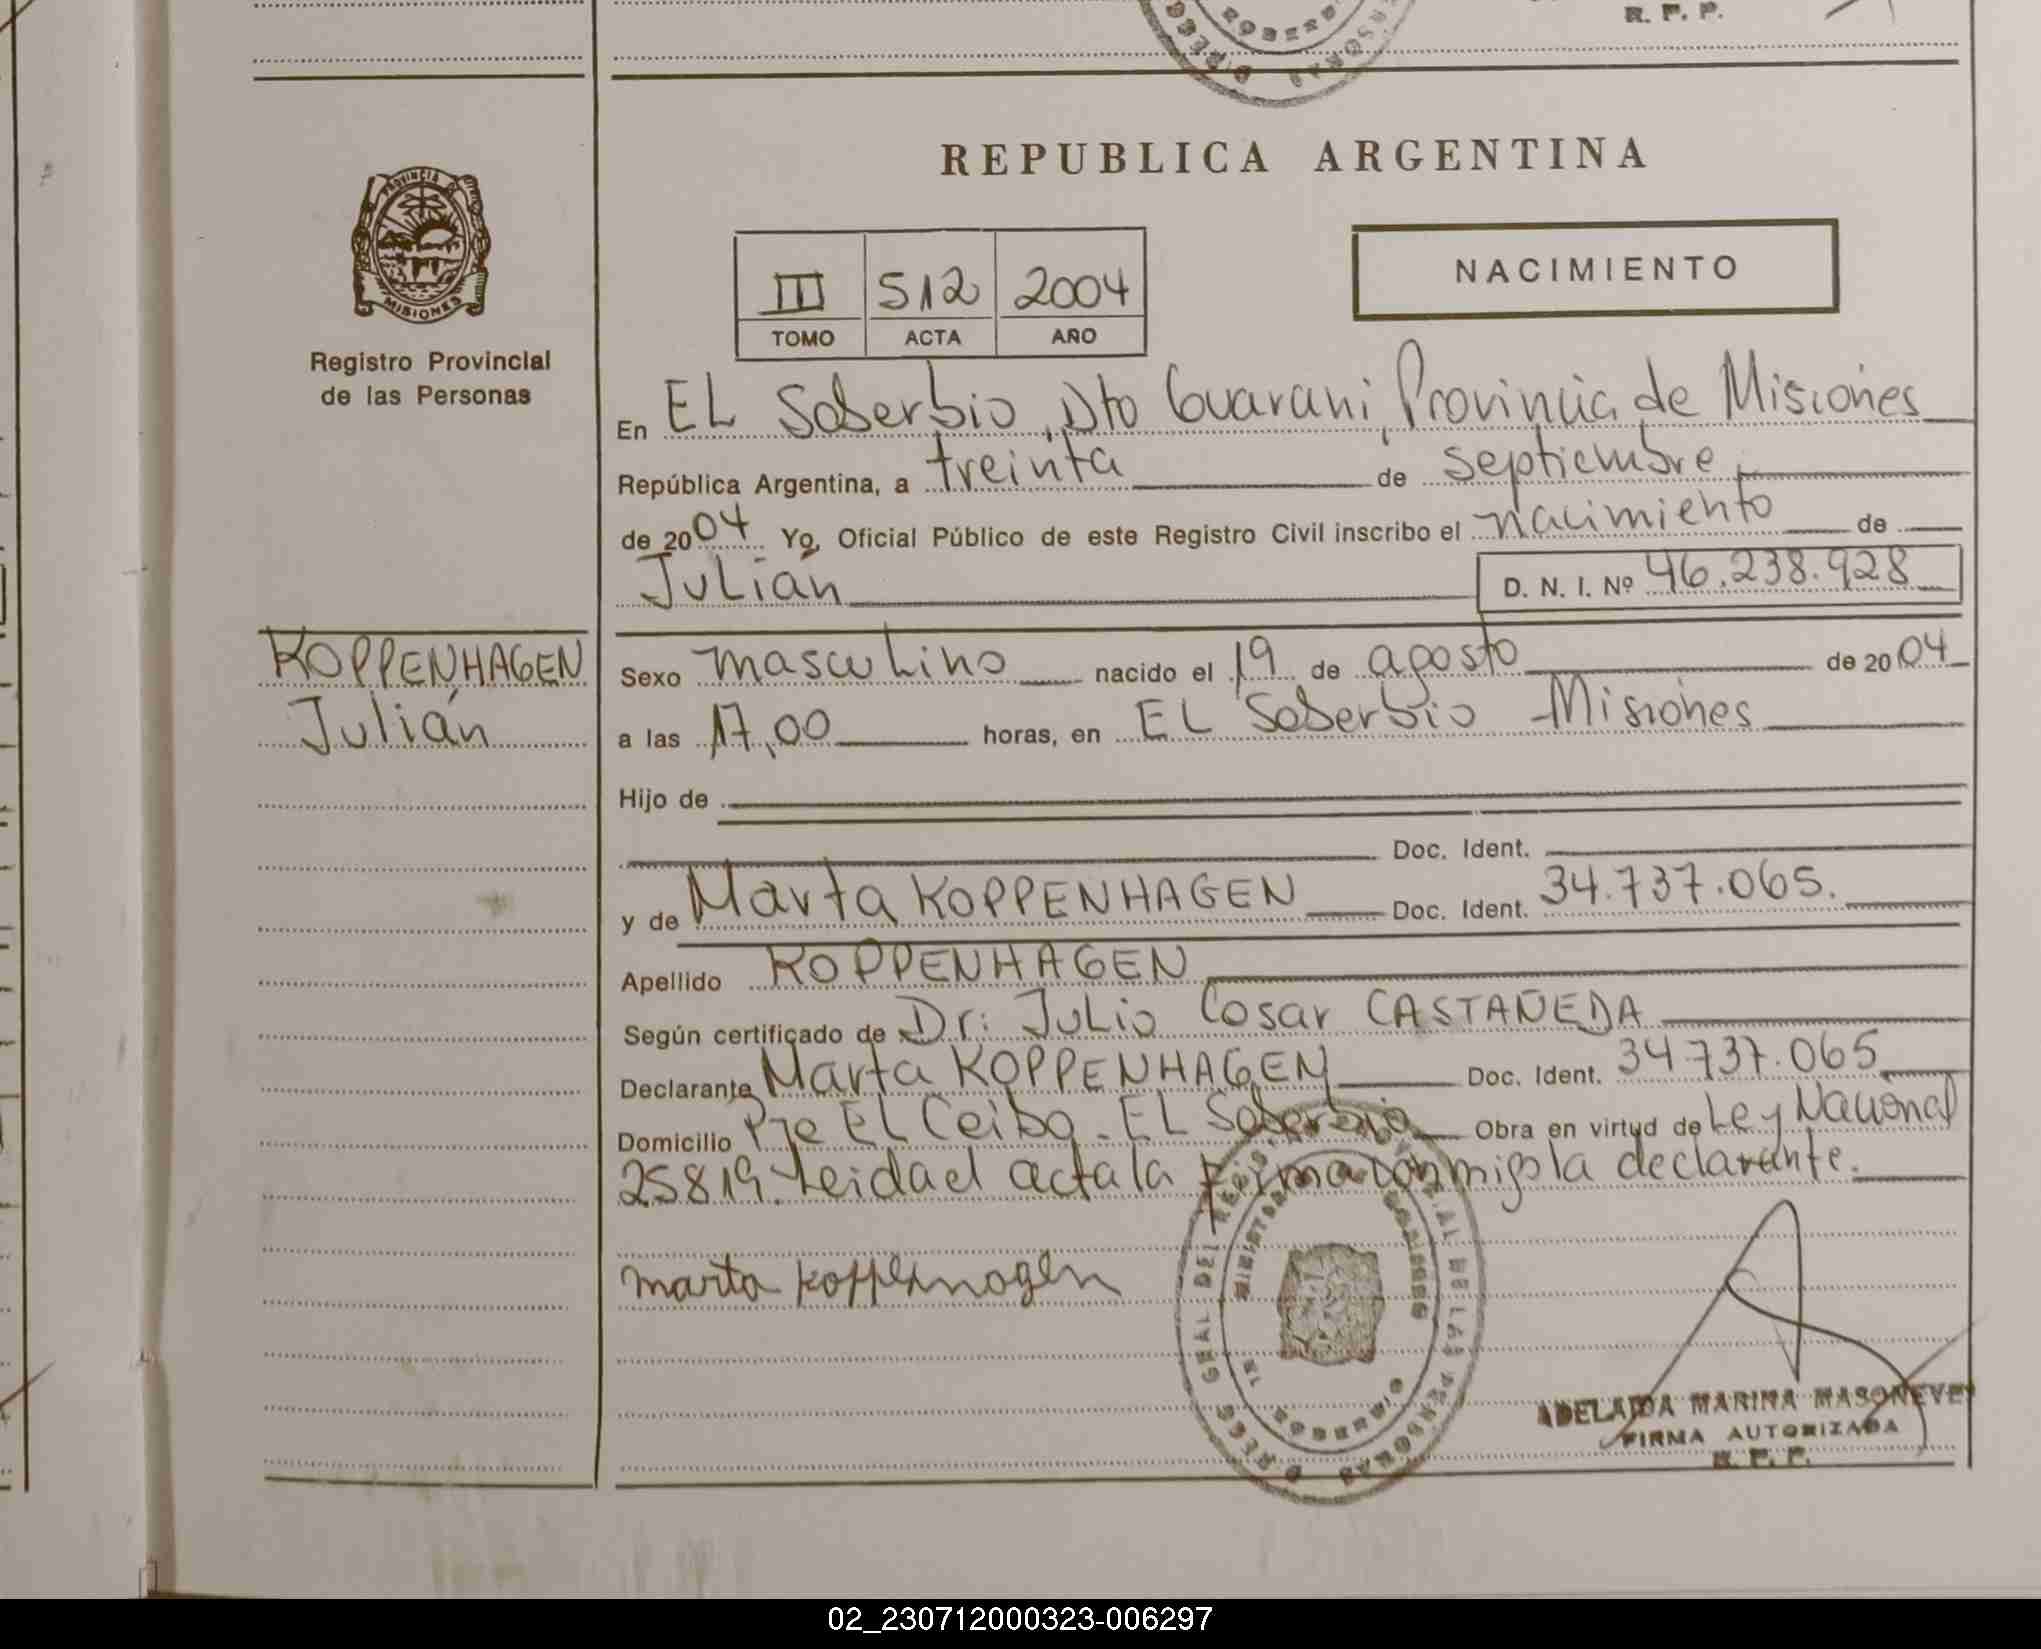 R. P. P.
REPUBLICA ARGENTINA
PROVINCIA DE
MISIONES
Registro Provincial
de las Personas
III 512 2004
TOMO ACTA AÑO
NACIMIENTO
En EL Soberbio, Dto Guarani, Provincia de Misiones
República Argentina, a treinta de septiembre
de 2004 Yo, Oficial Público de este Registro Civil inscribo el nacimiento de
Julián D. N. I. Nº 46.238.928
KOPPENHAGEN
Julián
Sexo masculino nacido el 19 de agosto de 2004
a las 17,00 horas, en EL Soberbio - Misiones
Hijo de
Doc. Ident.
y de Marta KOPPENHAGEN Doc. Ident. 34.737.065.
Apellido KOPPENHAGEN
Según certificado de Dr: Julio Cosar CASTAÑEDA
Declarante Marta KOPPENHAGEN Doc. Ident. 34.737.065
Domicilio Pje EL Ceibo - EL Soberbio Obra en virtud de Ley Nacional
25819. Leida el acta la firma conmigo la declarante.
marta koppenhagen
ADELAIDA MARINA MASONEVE
FIRMA AUTORIZADA
R. P. P.
02_230712000323-006297